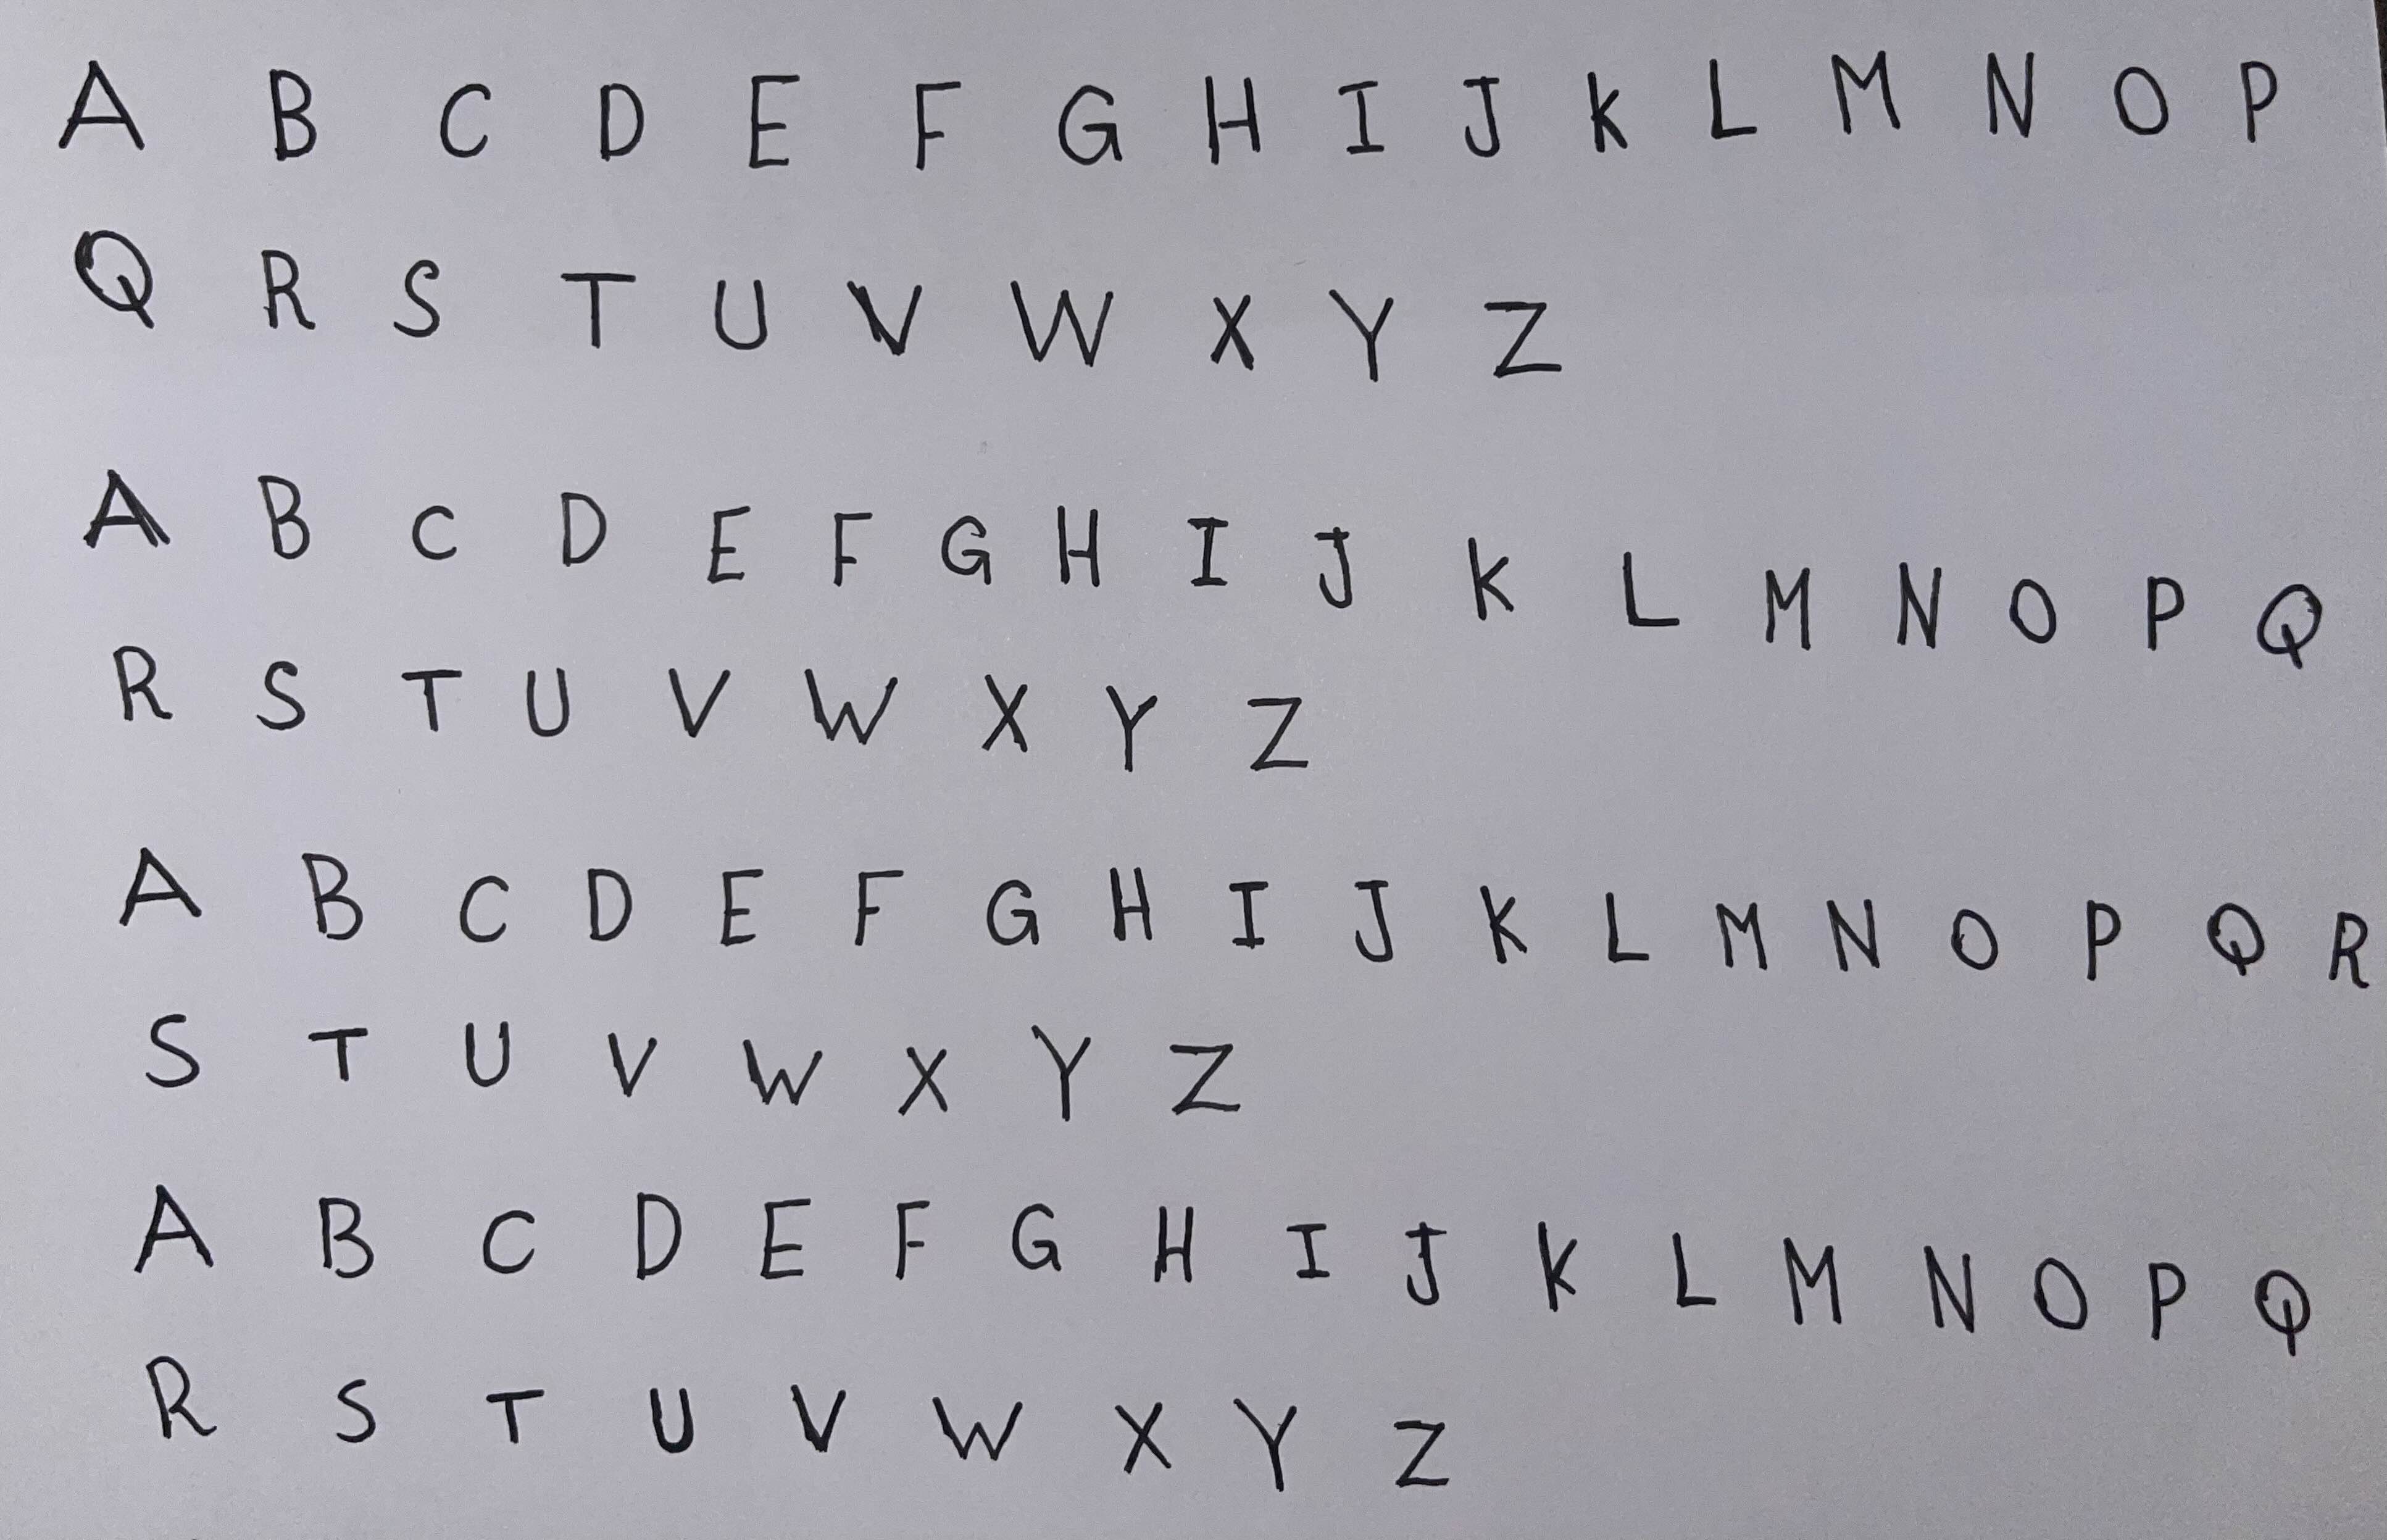 A B C D E F G H I J K L M N O P
Q R S T U V W X Y Z
A B C D E F G H I J K L M N O P Q
R S T U V W X Y Z
A B C D E F G H I J K L M N O P Q R
S T U V W X Y Z
A B C D E F G H I J K L M N O P Q
R S T U V W X Y Z